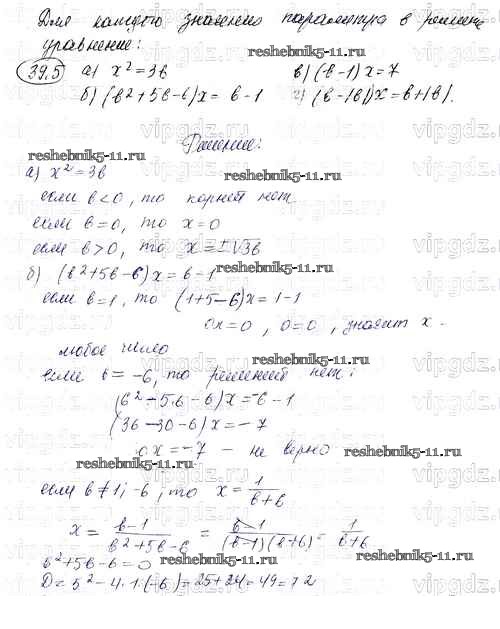 Для каждого значения параметра в решите
уравнение:
39.5 а) x² = 3в в) (в-1)x = 7
б) (в²+5в-6)x = в-1 г) (в-|в|)x = в+|в|.
reshebnik5-11.ru
Решение:
reshebnik5-11.ru
а) x² = 3в
reshebnik5-11.ru
если в<0, то корней нет
если в=0, то x=0
reshebnik5-11.ru
если в>0, то x=±√3в
б) (в²+5в-6)x = в-1
reshebnik5-11.ru
если в=1, то (1+5-6)x = 1-1
0x=0, 0=0, значит x -
любое число
reshebnik5-11.ru
если в=-6, то решений нет:
(6²-5·6-6)x=-6-1
(36-30-6)x=-7
0x=-7 - не верно
reshebnik5-11.ru
reshebnik5-11.ru
если в≠1; -6, то x = 1/в+6
x = в-1/в²+5в-6 = в-1/(в-1)(в+6) = 1/в+6
в²+5в-6=0
reshebnik5-11.ru
reshebnik5-11.ru
D=5²-4·1·(-6)=25+24=49=7²
vipgdz.ru